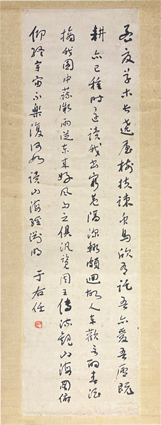 孟夏草木長遶屋樹扶疎眾鳥欣有託吾亦愛吾廬既
耕亦已種時還讀我書窮巷隔深轍頗迴故人車歡言酌春酒
摘我園中蔬微雨從東來好風與之俱汎覽周王傳流觀山海圖俯
仰終宇宙不樂復何如 讀山海經 淵明 于右任